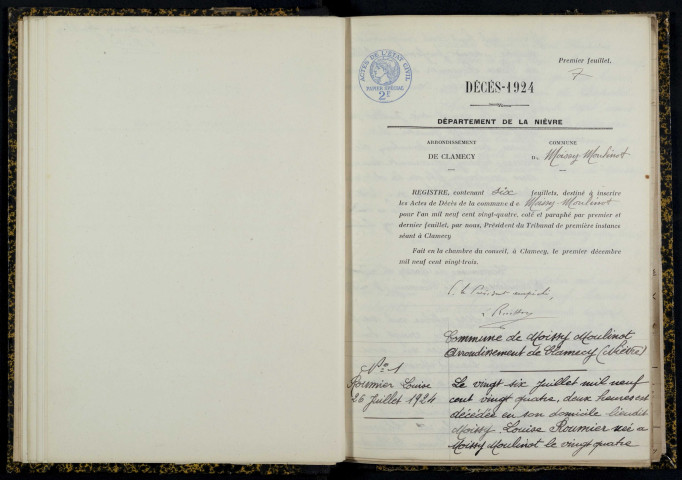 Premier feuillet.
7
ACTES DE L'ÉTAT CIVIL
PAPIER SPÉCIAL
2F
DÉCÈS-1924
DÉPARTEMENT DE LA NIÈVRE
ARRONDISSEMENT
DE CLAMECY
COMMUNE
De Moissy-Moulinot
REGISTRE, contenant six feuillets, destiné à inscrire
les Actes de Décès de la commune de Moissy-Moulinot
pour l'an mil neuf cent vingt-quatre, coté et paraphé par premier et
dernier feuillet, par nous, Président du Tribunal de première instance
séant à Clamecy
Fait en la chambre du conseil, à Clamecy, le premier décembre
mil neuf cent vingt-trois.
P. le Président empêché,
Commune de Moissy Moulinot
Arrondissement de Clamecy (Nièvre)
No 1
Roumier Louise
26 Juillet 1924
Le vingt six Juillet mil neuf
cent vingt quatre, deux heures est
décédée en son domicile lieudit
Moissy, Louise Roumier née à
Moissy Moulinot le vingt quatre